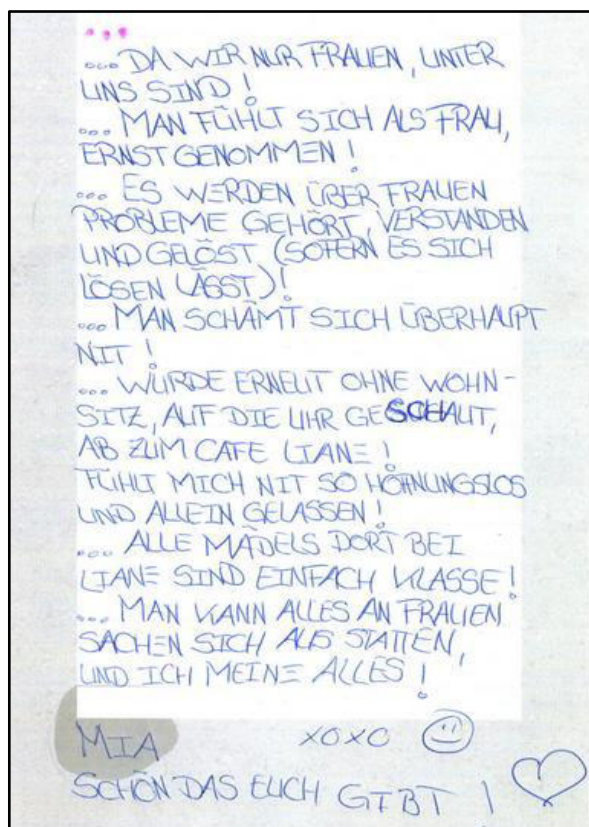 ...
... DA WIR NUR FRAUEN, UNTER
UNS SIND !
... MAN FÜHLT SICH ALS FRAU,
ERNST GENOMMEN !
... ES WERDEN ÜBER FRAUEN
PROBLEME GEHÖRT, VERSTANDEN
UND GELÖST, (SOFERN ES SICH
LÖSEN LÄSST)!
... MAN SCHÄMT SICH ÜBERHAUPT
NIT !
... WURDE ERNEUT OHNE WOHN-
SITZ, AUF DIE UHR GESCHAUT,
AB ZUM CAFE LIANE !
FÜHLT MICH NIT SO HÖFNUNGSLOS
UND ALLEIN GELASSEN !
... ALLE MÄDELS DORT BEI
LIANE SIND EINFACH KLASSE !
... MAN KANN ALLES AN FRAUEN
SACHEN SICH AUS STATTEN,
UND ICH MEINE ALLES !
MIA XOXO
SCHÖN DAS EUCH GIBT !